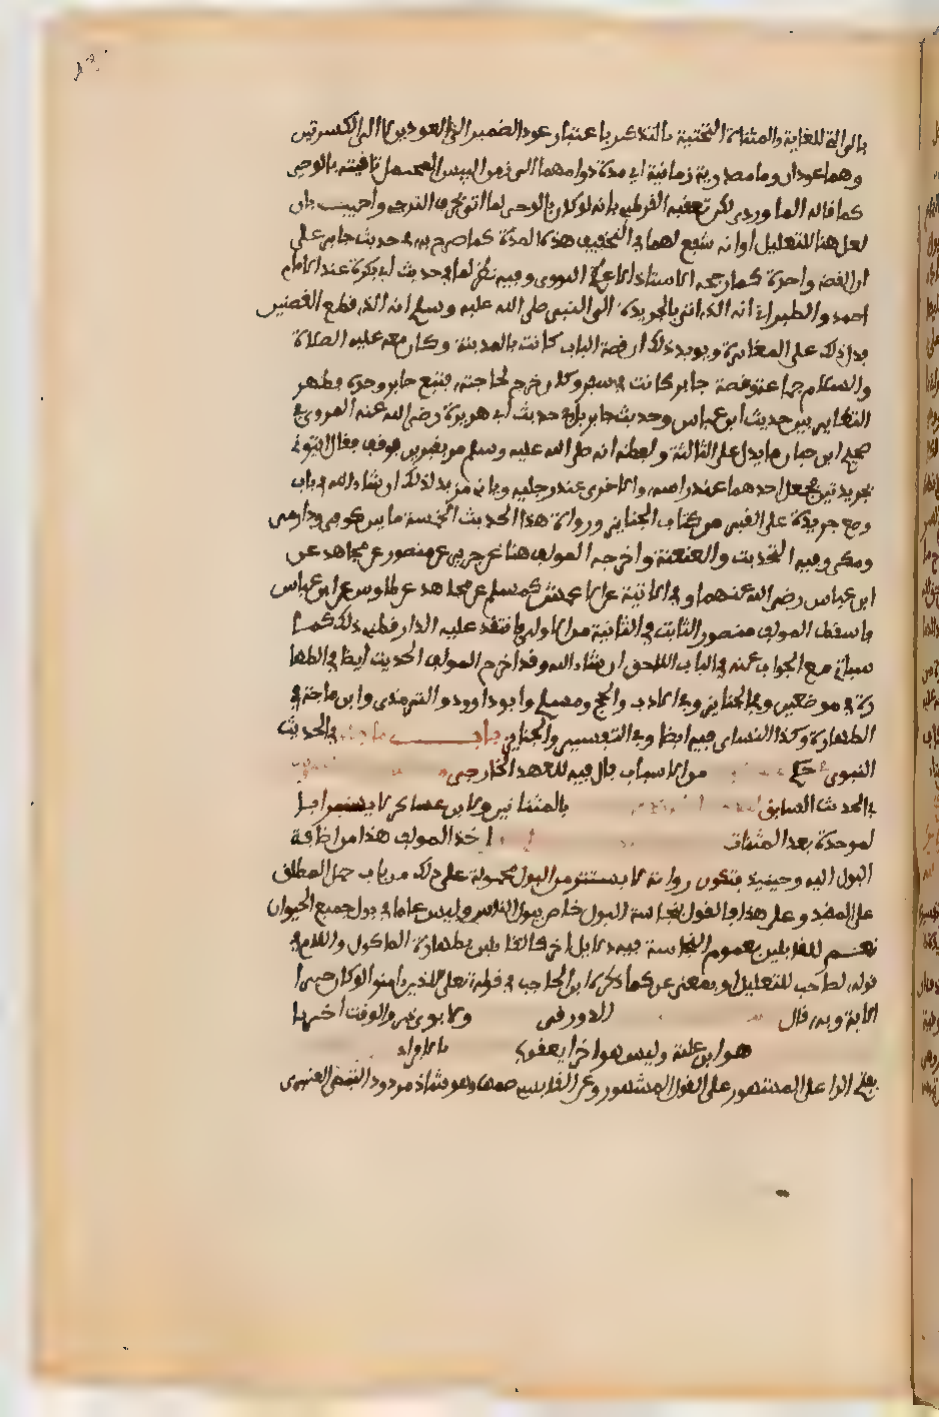 بالى التي للغاية والمثناة التحتية بالتذكير باعتبار عود الضمير الى العودين لا الى الكسرتين
وهما عودان وما مصدرية زمانية اي مدة دوامهما الى زمن اليبس المحتمل تاقيته بالوحي
كما قاله المازري لكن تعقبه القرطبي بانه لو كان بالوحي لما اتى بحرف الترجي واجيب بان
لعل هنا للتعليل او انه شفع لهما في التخفيف هذه المدة كما صرح به في حديث جابر على
ان القصة واحدة كما رجحه النووي وفيه نظر لما في حديث ابي بكرة عند الامام
احمد والطبراني انه الذي اتى بالجريدة الى النبي صلى الله عليه وسلم انه الذي قطع الغصنين
فدل ذلك على المغايرة ويويد ذلك ان قصة الباب كانت بالمدينة وكان معه عليه الصلاة
والسلام جماعة وقصة جابر كانت في سفر وكان خرج لحاجته فتبعه جابر وحده فظهر
التغاير بين حديث ابن عباس وحديث جابر بل في حديث ابي هريرة رضي الله عنه المروي في
صحيح ابن حبان ما يدل على الثالثة ولفظه انه صلى الله عليه وسلم مر بقبر فوقف فقال ايتوني
بجريدتين فجعل احدهما عند راسه والاخرى عند رجليه وياتي مزيد لذلك ان شاء الله في باب
وضع جريدة على القبر من كتاب الجنايز ورواة هذا الحديث الخمسة ما بين كوفي ودارمي
ومكي وفيه التحديث والعنعنة واخرجه المولف هنا عن جرير عن منصور عن مجاهد عن
ابن عباس رضي الله عنهما وفي الاتية عن الاعمش كمسلم عن مجاهد عن طاوس عن ابن عباس
فاسقط المولف منصور الثابت في الثانية من الاولى فانتقد عليه الدارقطني ذلك كما
سياتي مع الجواب عنه في الباب اللاحق ان شاء الله وقد اخرج المولف الحديث ايضا في الطها
رة في موضعين وفي الجنايز وفي الادب والحج ومسلم وابو داوود والترمذي وابن ماجة في
الطهارة وكذا النساي فيه ايضا وفي التفسير والجنايز باب ما جاء في الحديث
النبوي من الاسباب قال فيه للعهد الخارجي
في الحديث السابق بالمثناتين ولابن عساكر لا يستبرا با
لموحدة بعد المثناة اخذ المولف هذا من اضافة
البول اليه وحينيذ فتكون رواية لا يستتر من البول محمولة على ذلك من باب حمل المطلق
على المقيد وعلى هذا فالقول بنجاسة البول خاص ببول الناس وليس عاما في بول جميع الحيوان
نعم للقايلين بعموم النجاسة فيه دلايل اخر كالقايلين بطهارة الماكول واللام في
قوله لصاحب للتعليل او بمعنى عن كما ذكره ابن الحاجب في قوله تعلى للذين امنوا لو كان خيرا
الاية وبه قال الدورقي ولابوي ذر والوقت اخبرنا
هو ابن علية وليس هو اخا يعقوب بالافراد
بفتح الرا على المشهور على القول المشهور وعن القابسي ضمها وهو شاذ مردود التميمي العنبري